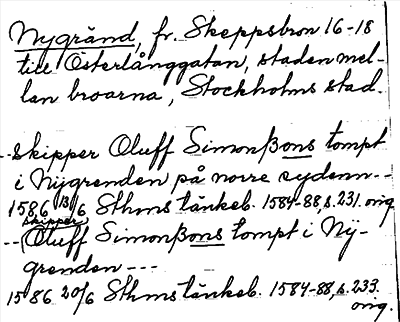 Nygränd, fr. Skeppsbron 16-18
till Österlånggatan, staden mel-
lan broarna, Stockholms stad.
--skipper Oluff Simonßons tompt
i Nÿgrenden på norre sydenn--
1586 13/6 Sthms tänkeb. 1584-88, s. 231. orig
skipper
--Oluff Simonßons tompt i Nÿ-
grenden ---
1586 20/6 Sthms tänkeb. 1584-88, s. 233.
orig.